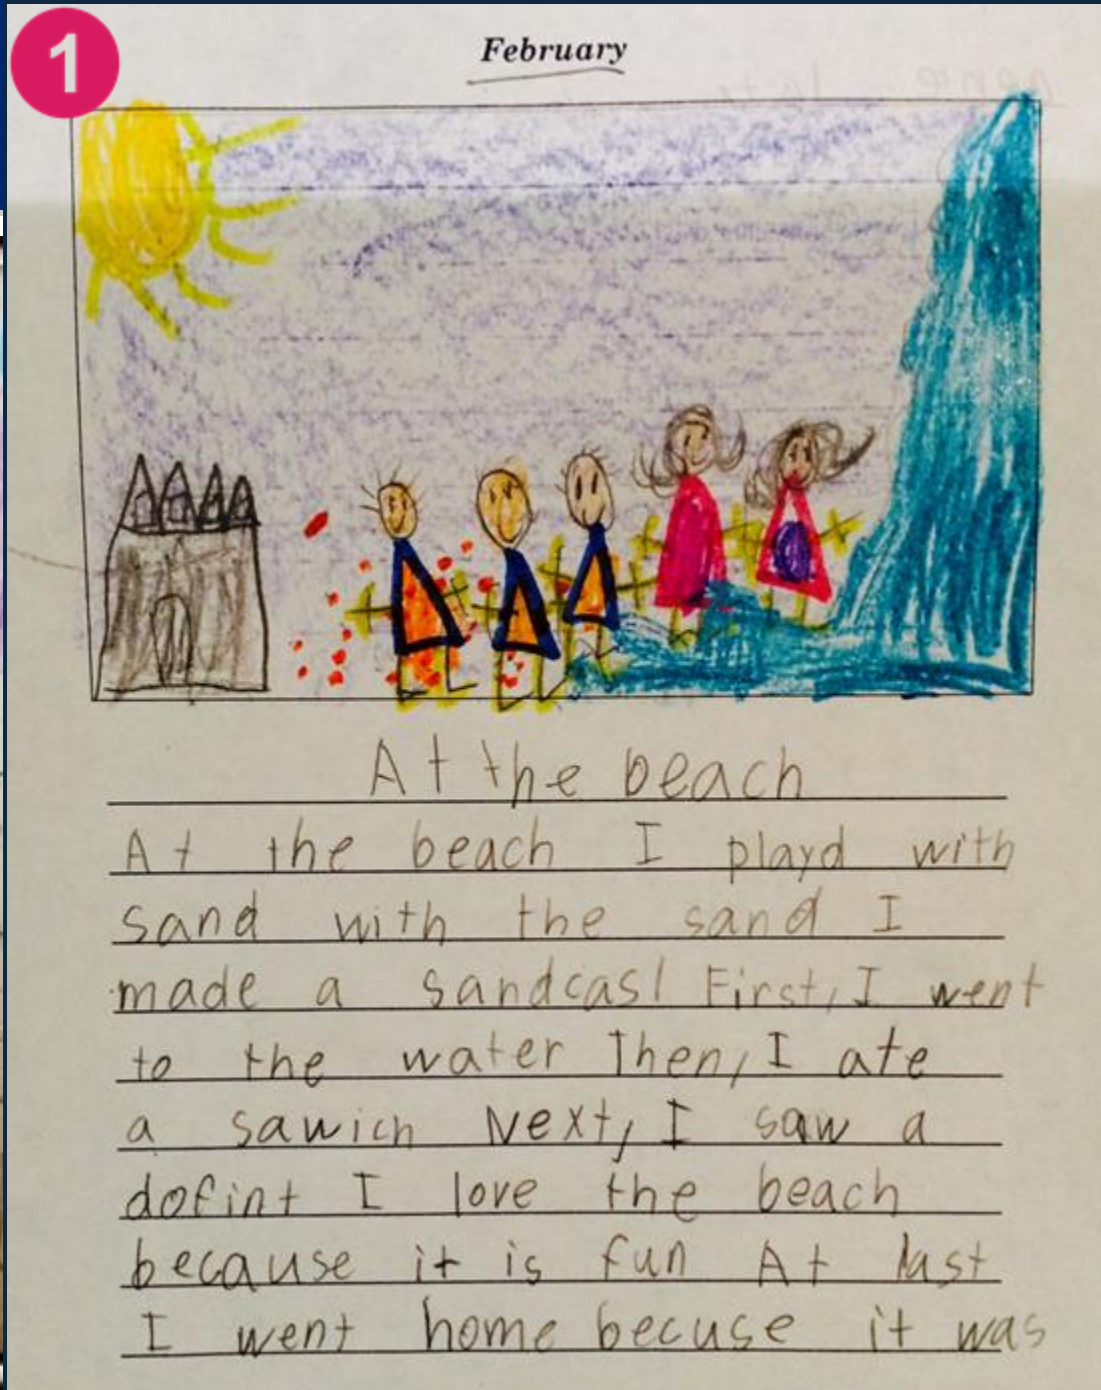 1
February
At the beach
At the beach I playd with
sand with the sand I
made a sandcasl First, I went
to the water Then, I ate
a sawich Next, I saw a
dofint I love the beach
because it is fun At last
I went home becuse it was